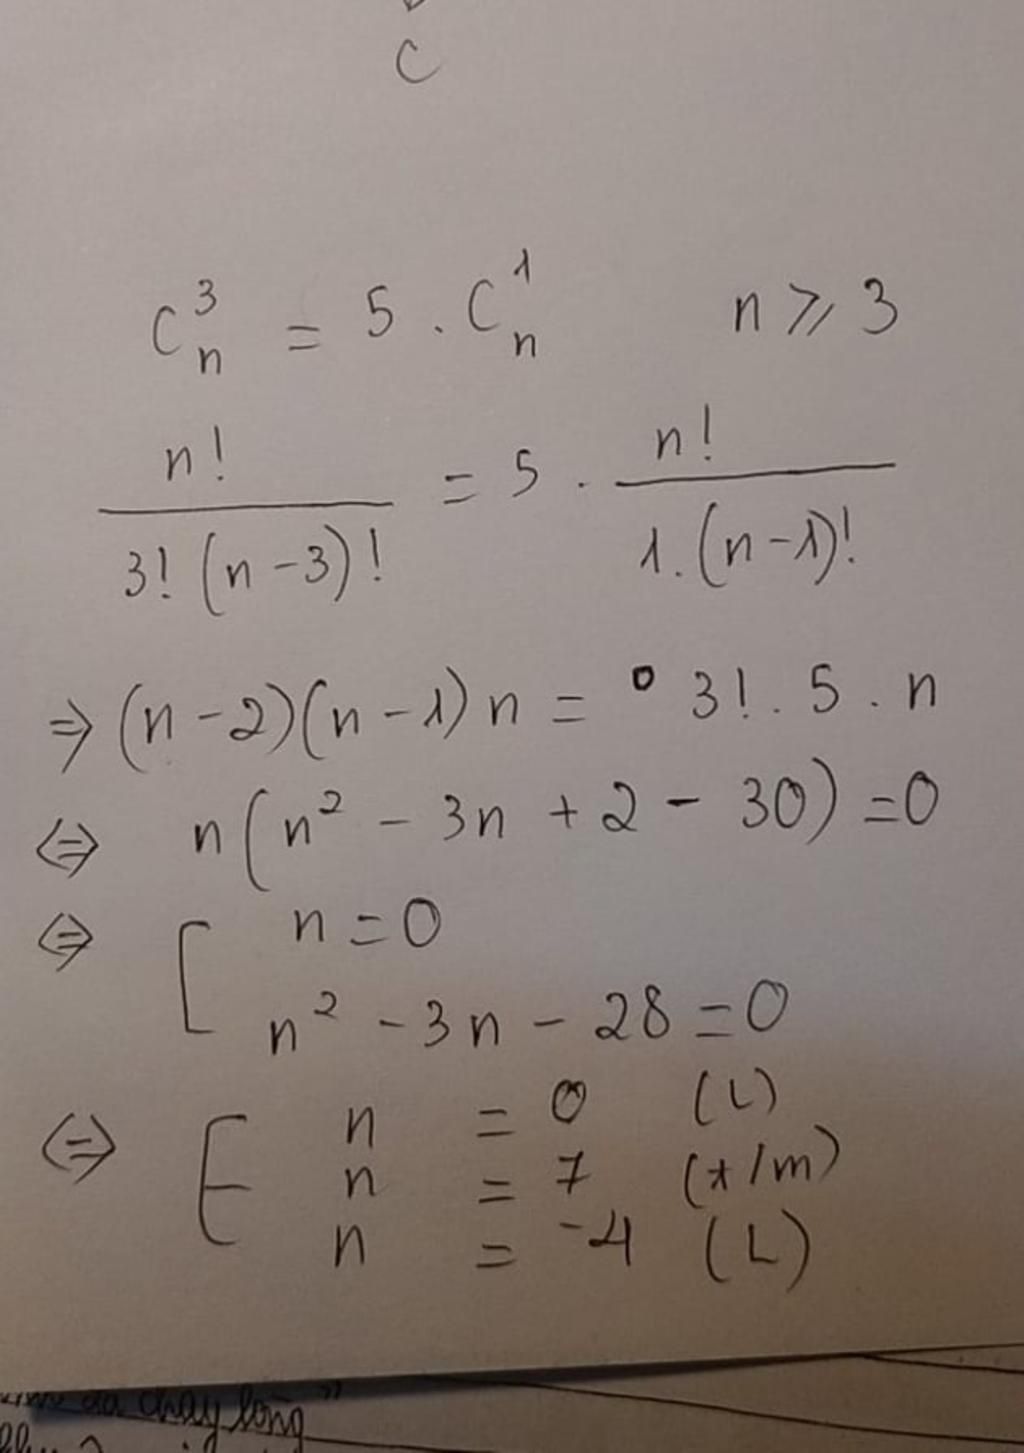 C
C_n^3 = 5 . C_n^1 n ⩾ 3
n! / 3! (n - 3)! = 5 . n! / 1. (n - 1)!
⇒ (n - 2)(n - 1) n = 3! . 5 . n
⇔ n (n² - 3n + 2 - 30) = 0
⇔ [ n = 0
n² - 3n - 28 = 0
⇔ [ n = 0 (L)
n = 7 (t/m)
n = -4 (L)
chạy lòng"